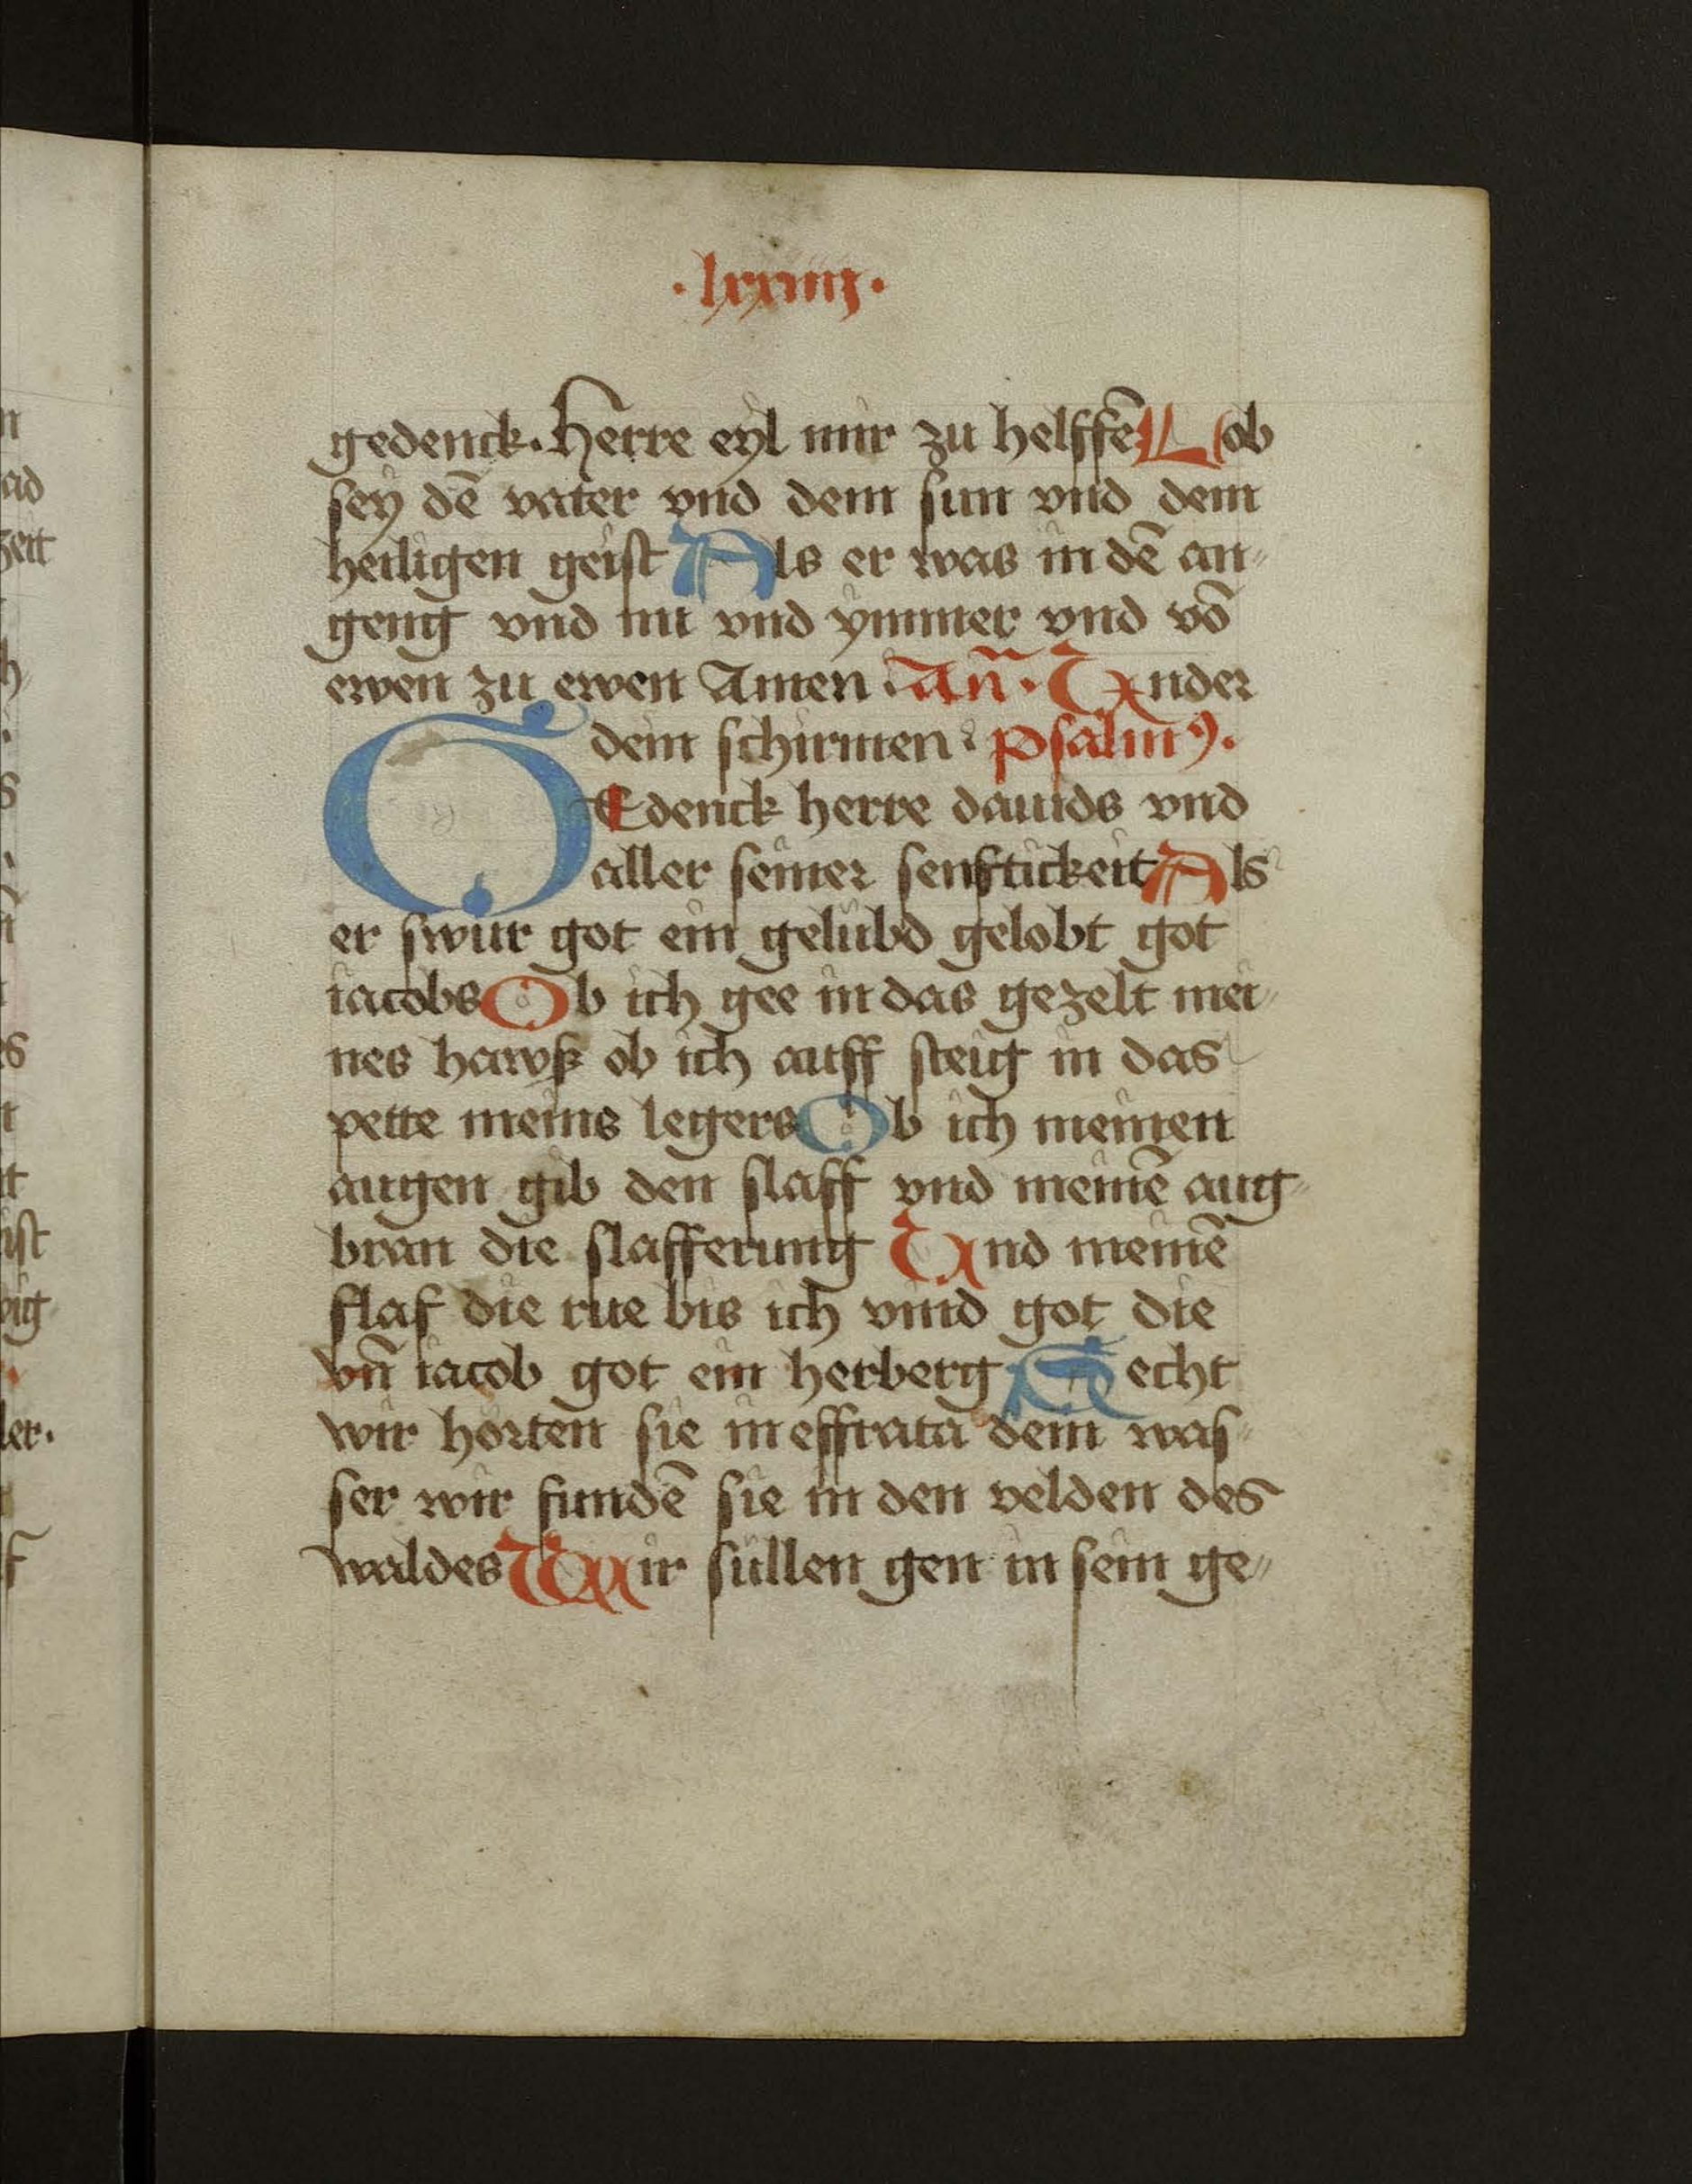 ·lxxiiij·
gedenck. Herre eyl mir zu helffē Lob
sey dē vater vnd dem sun vnd dem
heiligen geist Als er was in dē an⸗
geng vnd nu vnd ymmer vnd vō
ewen zu ewen Amen · Añ · Vnder
dein schirmen · psalmꝰ.
GEdenck herre dauids vnd
aller seiner senftickeit Als
er swur got ein gelubd gelobt got
iacobs Ob ich gee in das gezelt mei⸗
nes hawß ob ich auff steig in das
pette meins legers Ob ich meinen
augen gib den slaff vnd meinē aug⸗
bran die slafferung Vnd meinē
slaf die rue bis ich vind got die
vñ iacob got ein herberg Secht
wir horten sie in effrata dem was⸗
ser wir fundē sie in den velden des
waldes Wir sullen gen in sein ge⸗